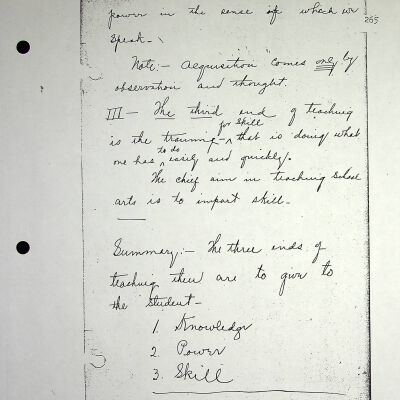 power in the sense of which we
265
speak.
Note:- Acquisition comes only by
observation and thought.
III - The third end of teaching
for skill
is the training - that is doing what
to do
one has easily and quickly.
The chief aim in teaching School
arts is to impart skill.
Summary:- The three ends of
teaching then are to give to
the student -
1. Knowledge
2. Power
3. Skill